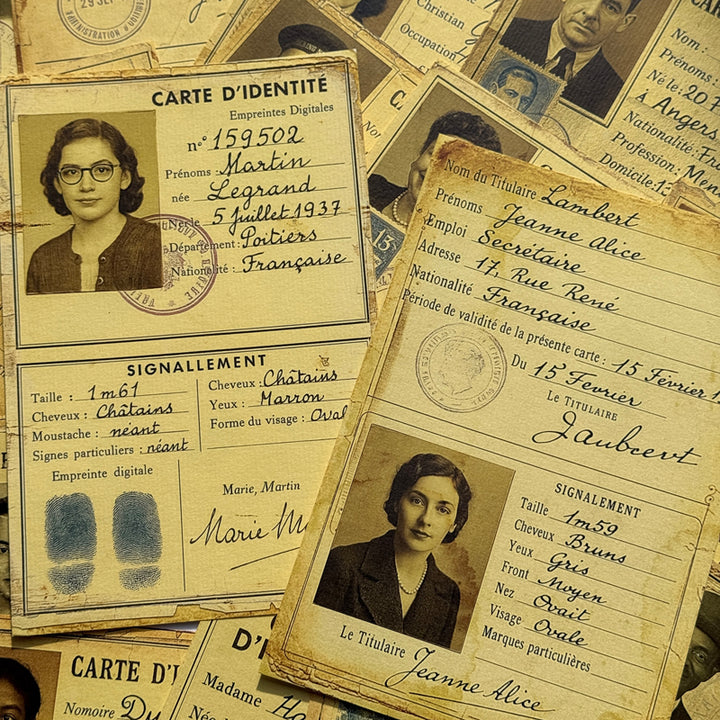 CARTE D'IDENTITÉ
Empreintes Digitales
n° 159502
Prénoms : Martin
née Legrand
Née le 5 juillet 1937
Département : Poitiers
Nationalité : Française
SIGNALLEMENT
Taille : 1m61
Cheveux : Châtains
Moustache : néant
Signes particuliers : néant
Empreinte digitale
Cheveux : Châtains
Yeux : Marron
Forme du visage : Oval
Marie, Martin
Marie
Nom du Titulaire Lambert
Prénoms Jeanne Alice
Emploi Secrétaire
Adresse 17, Rue René
Nationalité Française
Période de validité de la présente carte : 15 Février
Du 15 Fevrier
Le TITULAIRE
Jaubcert
SIGNALEMENT
Taille 1m59
Cheveux Bruns
Yeux Gris
Front Moyen
Nez Ovait
Visage Ovale
Marques particulières
Le Titulaire Jeanne Alice
29 SEP
ADMINISTRATION
CARTE
Christian
Occupation
CAR
Nom :
Prénoms
Né le : 20
à Angers
Nationalité : Fr
Profession : Men
Domicile : 13
13
CARTE D'I
Nomoire
D'I
Madame
Née